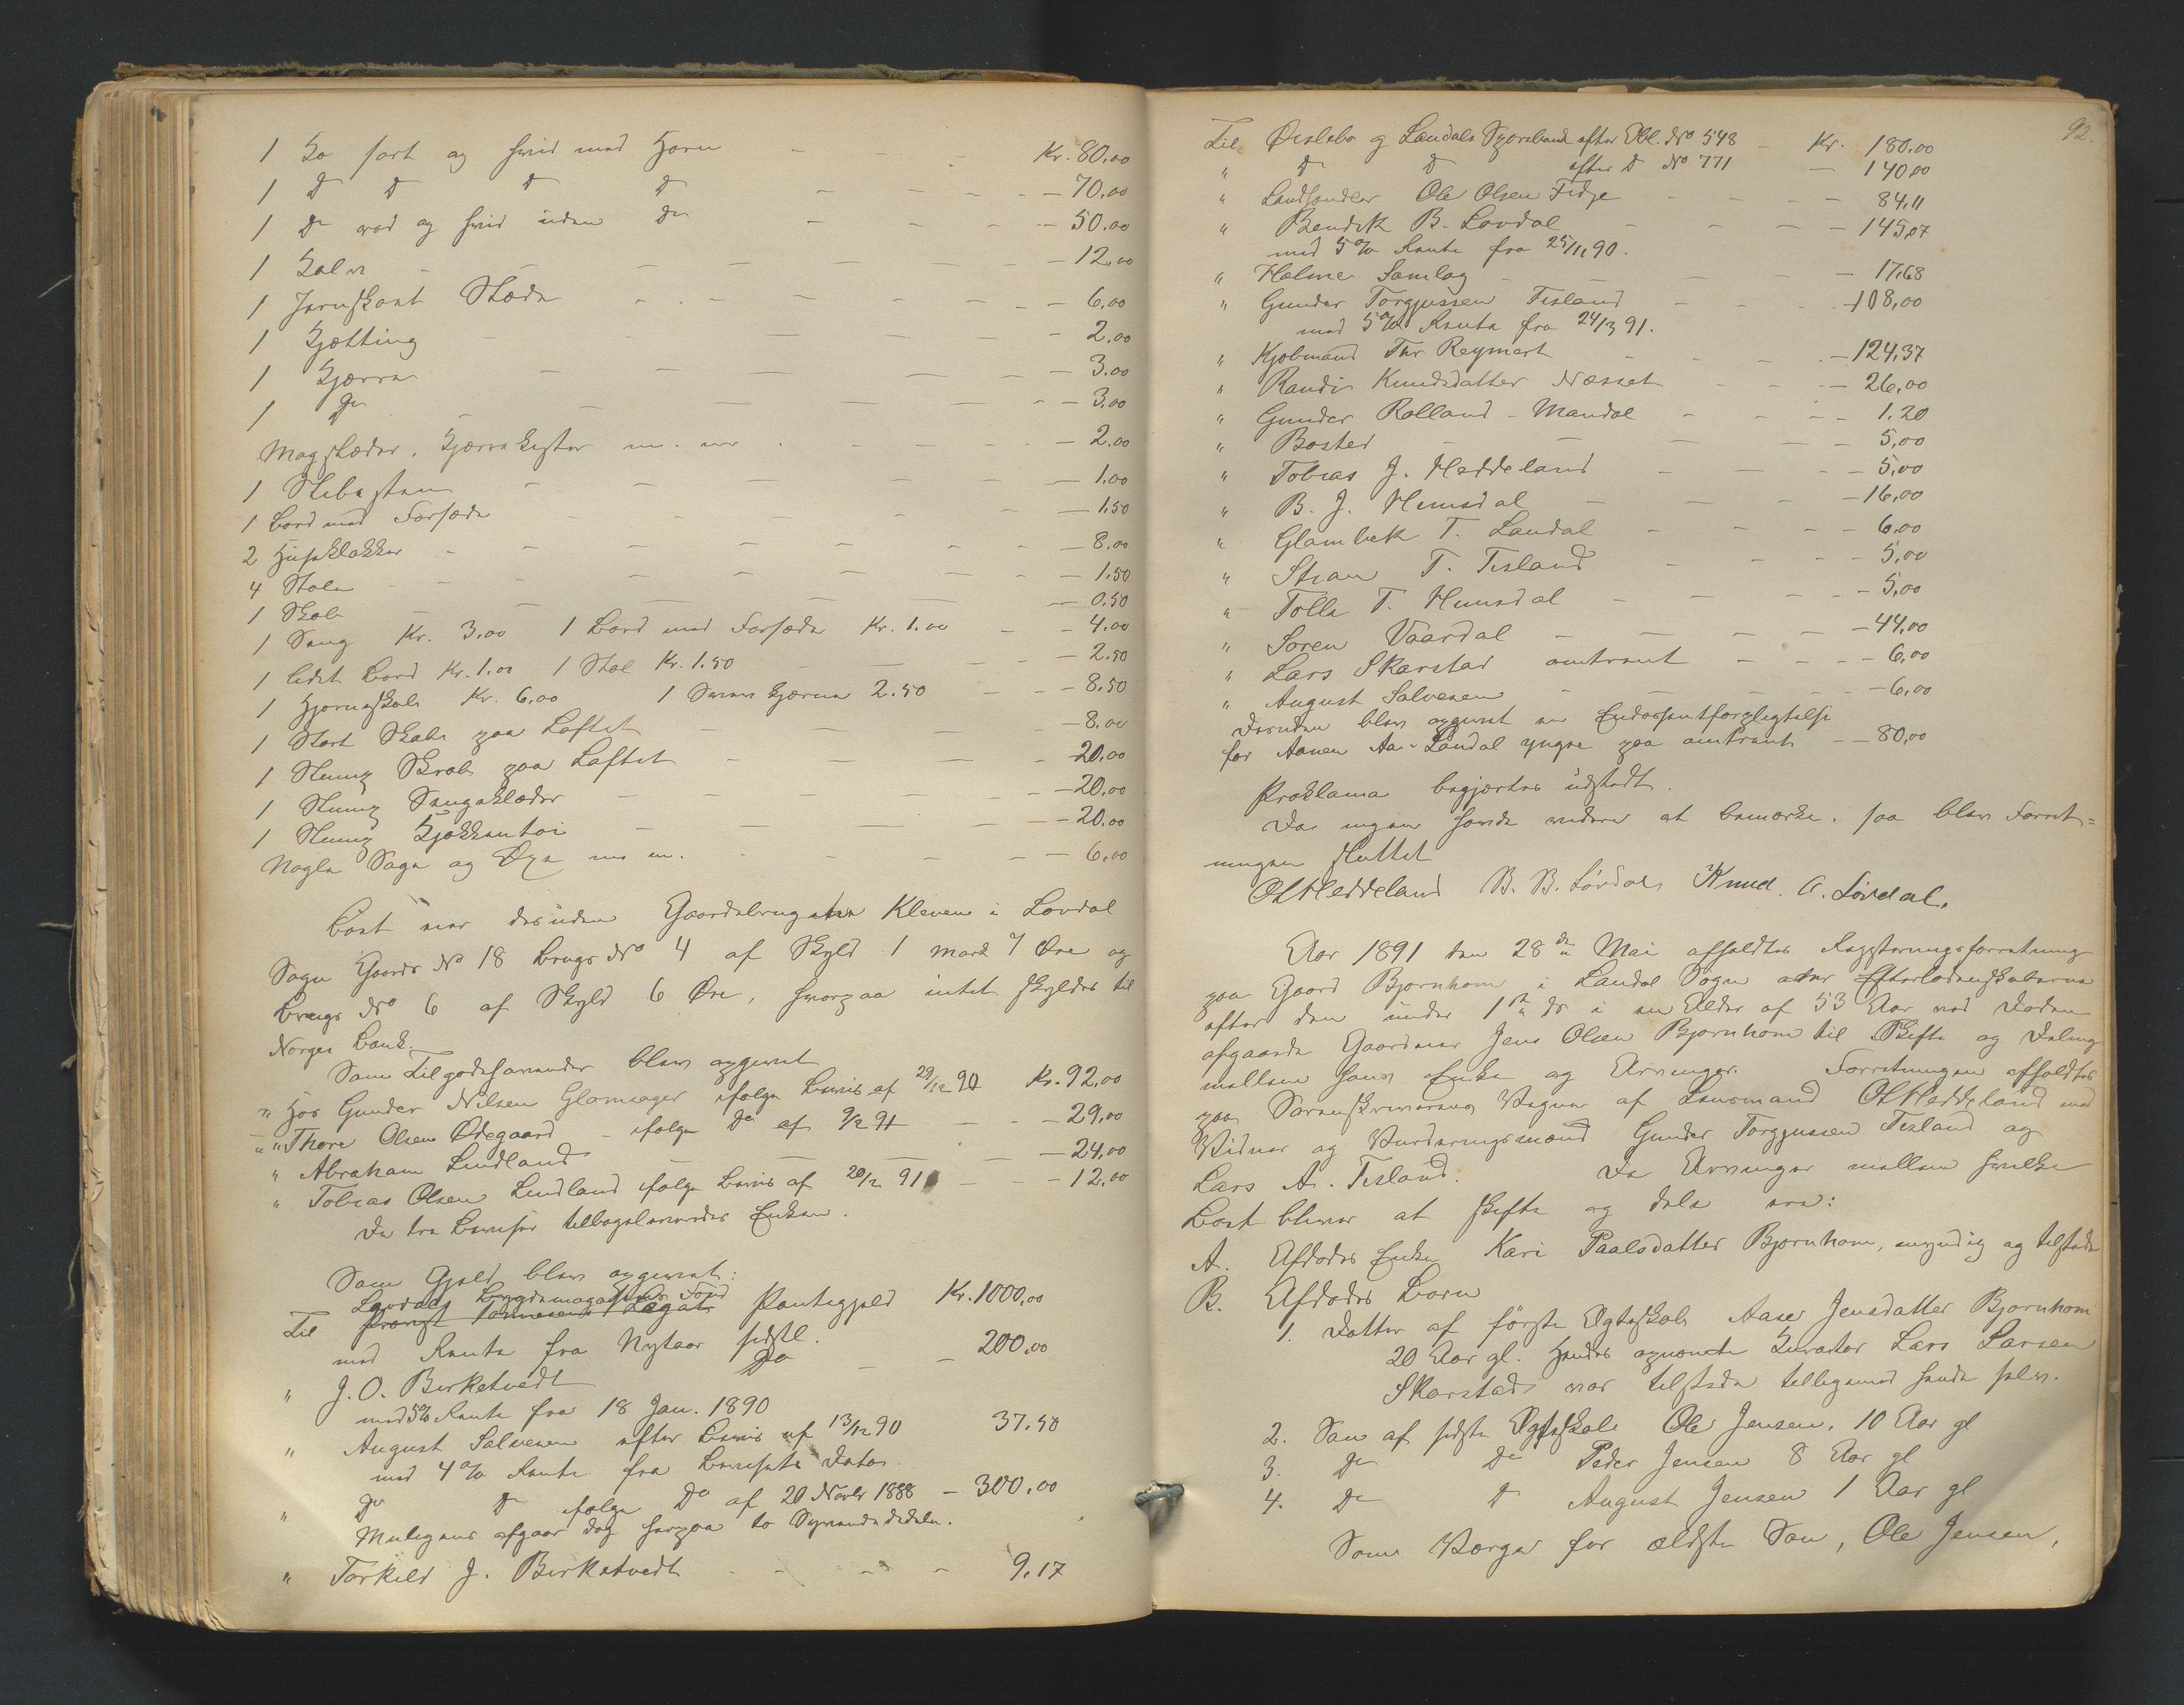 1 Ko sort og hvid med Horn — Kr. 80.00
1 Do Do Do Do — 70.00
1 Do rød og hvid uden Do — 50.00
1 Kalv — 12.00
1 Jernskoet Slæde — 6.00
1 Kjætting — 2.00
1 Kjærre — 3.00
1 Do — 3.00
Møgslæder, Kjærrekister m. m. — 2.00
1 Slibesten — 1.00
1 Bord med Forsæde — 1.50
2 Huseklokker — 8.00
4 Stole — 1.50
1 Skab — 0.50
1 Seng Kr. 3.00 1 Bord med Forsæde Kr. 1.00 — 4.00
1 lidet Bord Kr. 1.00 1 Stol Kr. 1.50 — 2.50
1 Hjørneskab Kr. 6.00 1 Smørkjærne 2.50 — 8.50
1 Stort Skab paa Loftet — 8.00
1 Slump Skrab paa Loftet — 20.00
1 Slump Sengeklæder — 20.00
1 Slump Kjøkkentøi — 20.00
Nogle Sage og Øxe m. m. — 6.00
Boet eier desuden Gaardsbruget Kleven i Løvdal
Sogn Gaards No 18 Brugs No 4 af Skyld 1 mark 7 Øre og
Brugs No 6 af Skyld 6 Øre, hvorpaa intet skyldes til
Norges Bank.
Som Tilgodehavender blev opgivet
" Hos Gunder Nilsen Glomsager ifølge Bevis af 29/12 90 Kr. 92.00
" " Thore Olsen Ødegaard — ifølge Do af 9/2 91 — 29.00
" Abraham Lindland — 24,00
" Tobias Olsen Lindland ifølge Bevis af 20/2 91 — 12.00
De tre Beviser tilbageleveredes Enken.
Som Gjæld blev opgivet:
Løvdals Bygdemagasins Fond
Til Provst Tønnesens Legat Pantegjæld Kr. 1000,00
med Rente fra Nytaar sidstl.
" J. O. Birketvedt Do — 200,00
med 5% Rente fra 18 Jan. 1890
" August Salvesen efter Bevis af 13/12 90 37.50
med 4% Rente fra Bevisets Dato.
" Do Do ifølge Do af 20 Novbr 1888 — 300.00
Muligens afgaar dog herpaa to
" Torkild J. Birketvedt — 9.17
92.
Til Øislebø og Laudals Sparebank efter Obl. No 548 — Kr. 180.00
" Do Do efter Do No 771 — 140.00
" Landhandler Ole Olsen Fidje — 84.11
" Bendik B. Løvdal — 145,07
med 5% Rente fra 25/11 90.
" Holme Samlag — 17,68
" Gunder Torgjussen Tisland — 108,00
med 5% Rente fra 24/3 91.
" Kjøbmand Thr Reymert — 124,37
" Randi Knudsdatter Næsset — 26,00
" Gunder Rolland - Mandal — 1.20
" Bosted — 5,00
" Tobias J. Heddeland — 5,00
" B. J. Hemsdal — 16,00
" Glambek T. Laudal — 6.00
" Stian T. Tisland — 5,00
" Tolle T. Hunsdal — 5,00
" Søren Vaardal — 44,00
" Lars Skarstad omtrent — 6,00
" August Salvesen — 6,00
Desuden blev opgivet en Endossentforpligtelse
for Aanen Aa. Laudal yngre paa omtrent — 80,00
Proklama begjærtes udstedt.
Da ingen havde videre at bemærke, saa blev Forret=
ningen sluttet
OHHeddeland B. B. Løvdal Knud A. Løvdal.
Aar 1891 den 28de Mai afholdtes Registreringsforretning
paa Gaard Bjørnhom i Laudal Sogn over Efterladenskaberne
efter den under 1ste ds i en Alder af 53 Aar ved Døden
afgaaede Gaardmand Jens Olsen Bjørnhom til Skifte og Deling
mellem hans Enke og Arvinger. Forretningen afholdtes
paa Sorenskriverens Vegne af Lensmand OHHeddeland med
Vidner og Vurderingsmænd Gunder Torgjussen Tisland og
Lars A. Tisland. De Arvinger mellem hvilke
Boet bliver at skifte og dele ere:
A. Afdødes Enke Kari Paalsdatter Bjørnhom, myndig og tilstede
B. Afdødes Børn
1. Datter af første Ægteskab Aase Jensdatter Bjørnhom
20 Aar gl. Hendes opnævnte Kurator Lars Larsen
Skarstad var tilstede tilligemed hende selv.
2. Søn af sidste Ægteskab Ole Jensen, 10 Aar gl
3. Do Do Peder Jensen 8 Aar gl
4. Do Do August Jensen 1 Aar gl
Som Værge for ældste Søn, Ole Jensen,